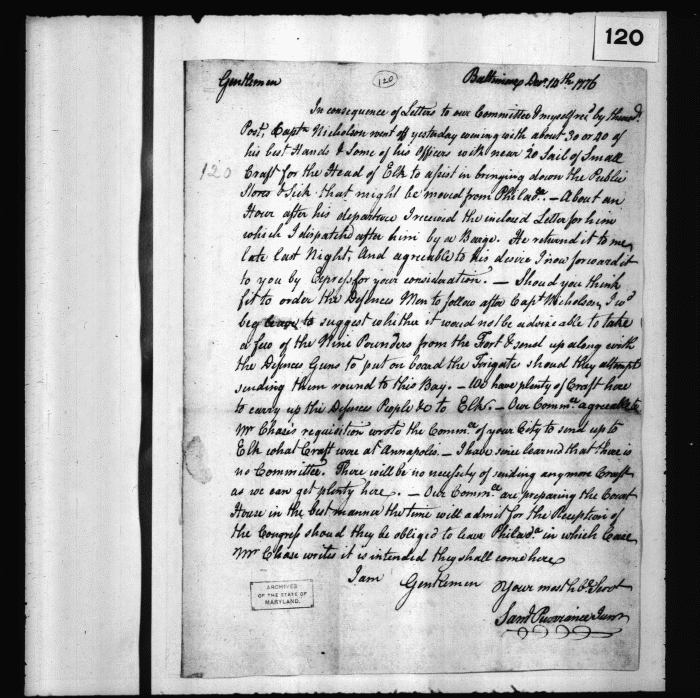 120
Gentlemen
120
Baltimore Decr. 10th. 1776
In consequence of Letters to our Committee & myself recd. by the
Post, Captn. Nicholson went off yesterday evening with about 30 or 40 of
his best Hands & some of his Officers with near 20 Sail of Small
120
Craft for the Head of Elk to assist in bringing down the Public
Stores & Sick that might be moved from Philada. — About an
Hour after his departure I received the inclosed Letter for him
which I dispatched after him by a Barge. He returned it to me
late last Night, And agreeable to his desire I now forward it
to you by Express for your consideration. — Should you think
fit to order the Defences Men to follow after Capt. Nicholson, I wd.
beg leave to suggest whether it would not be adviceable to take
a few of the Nine Pounders from the Fort & send up along with
the Defences Guns to put on board the Frigate should they attempt
sending them round to this Bay. — We have plenty of Craft here
to carry up the Defences People &c to Elk. — Our Commee. agreeable to
Mr Chase's requisition wrote the Commee. of your City to send up to
Elk what Craft were at Annapolis. — I have since learned that there is
no Committee. There will be no necessity of sending any more Craft
as we can get plenty here. — Our Commee. are preparing the Court
House in the best manner the time will admit for the Reception of
the Congress should they be obliged to leave Philada. in which Case
Mr Chase writes it is intended they shall come here
I am Gentlemen Your most hble Servt
Saml Purviance Junr
ARCHIVES
OF THE STATE OF
MARYLAND.